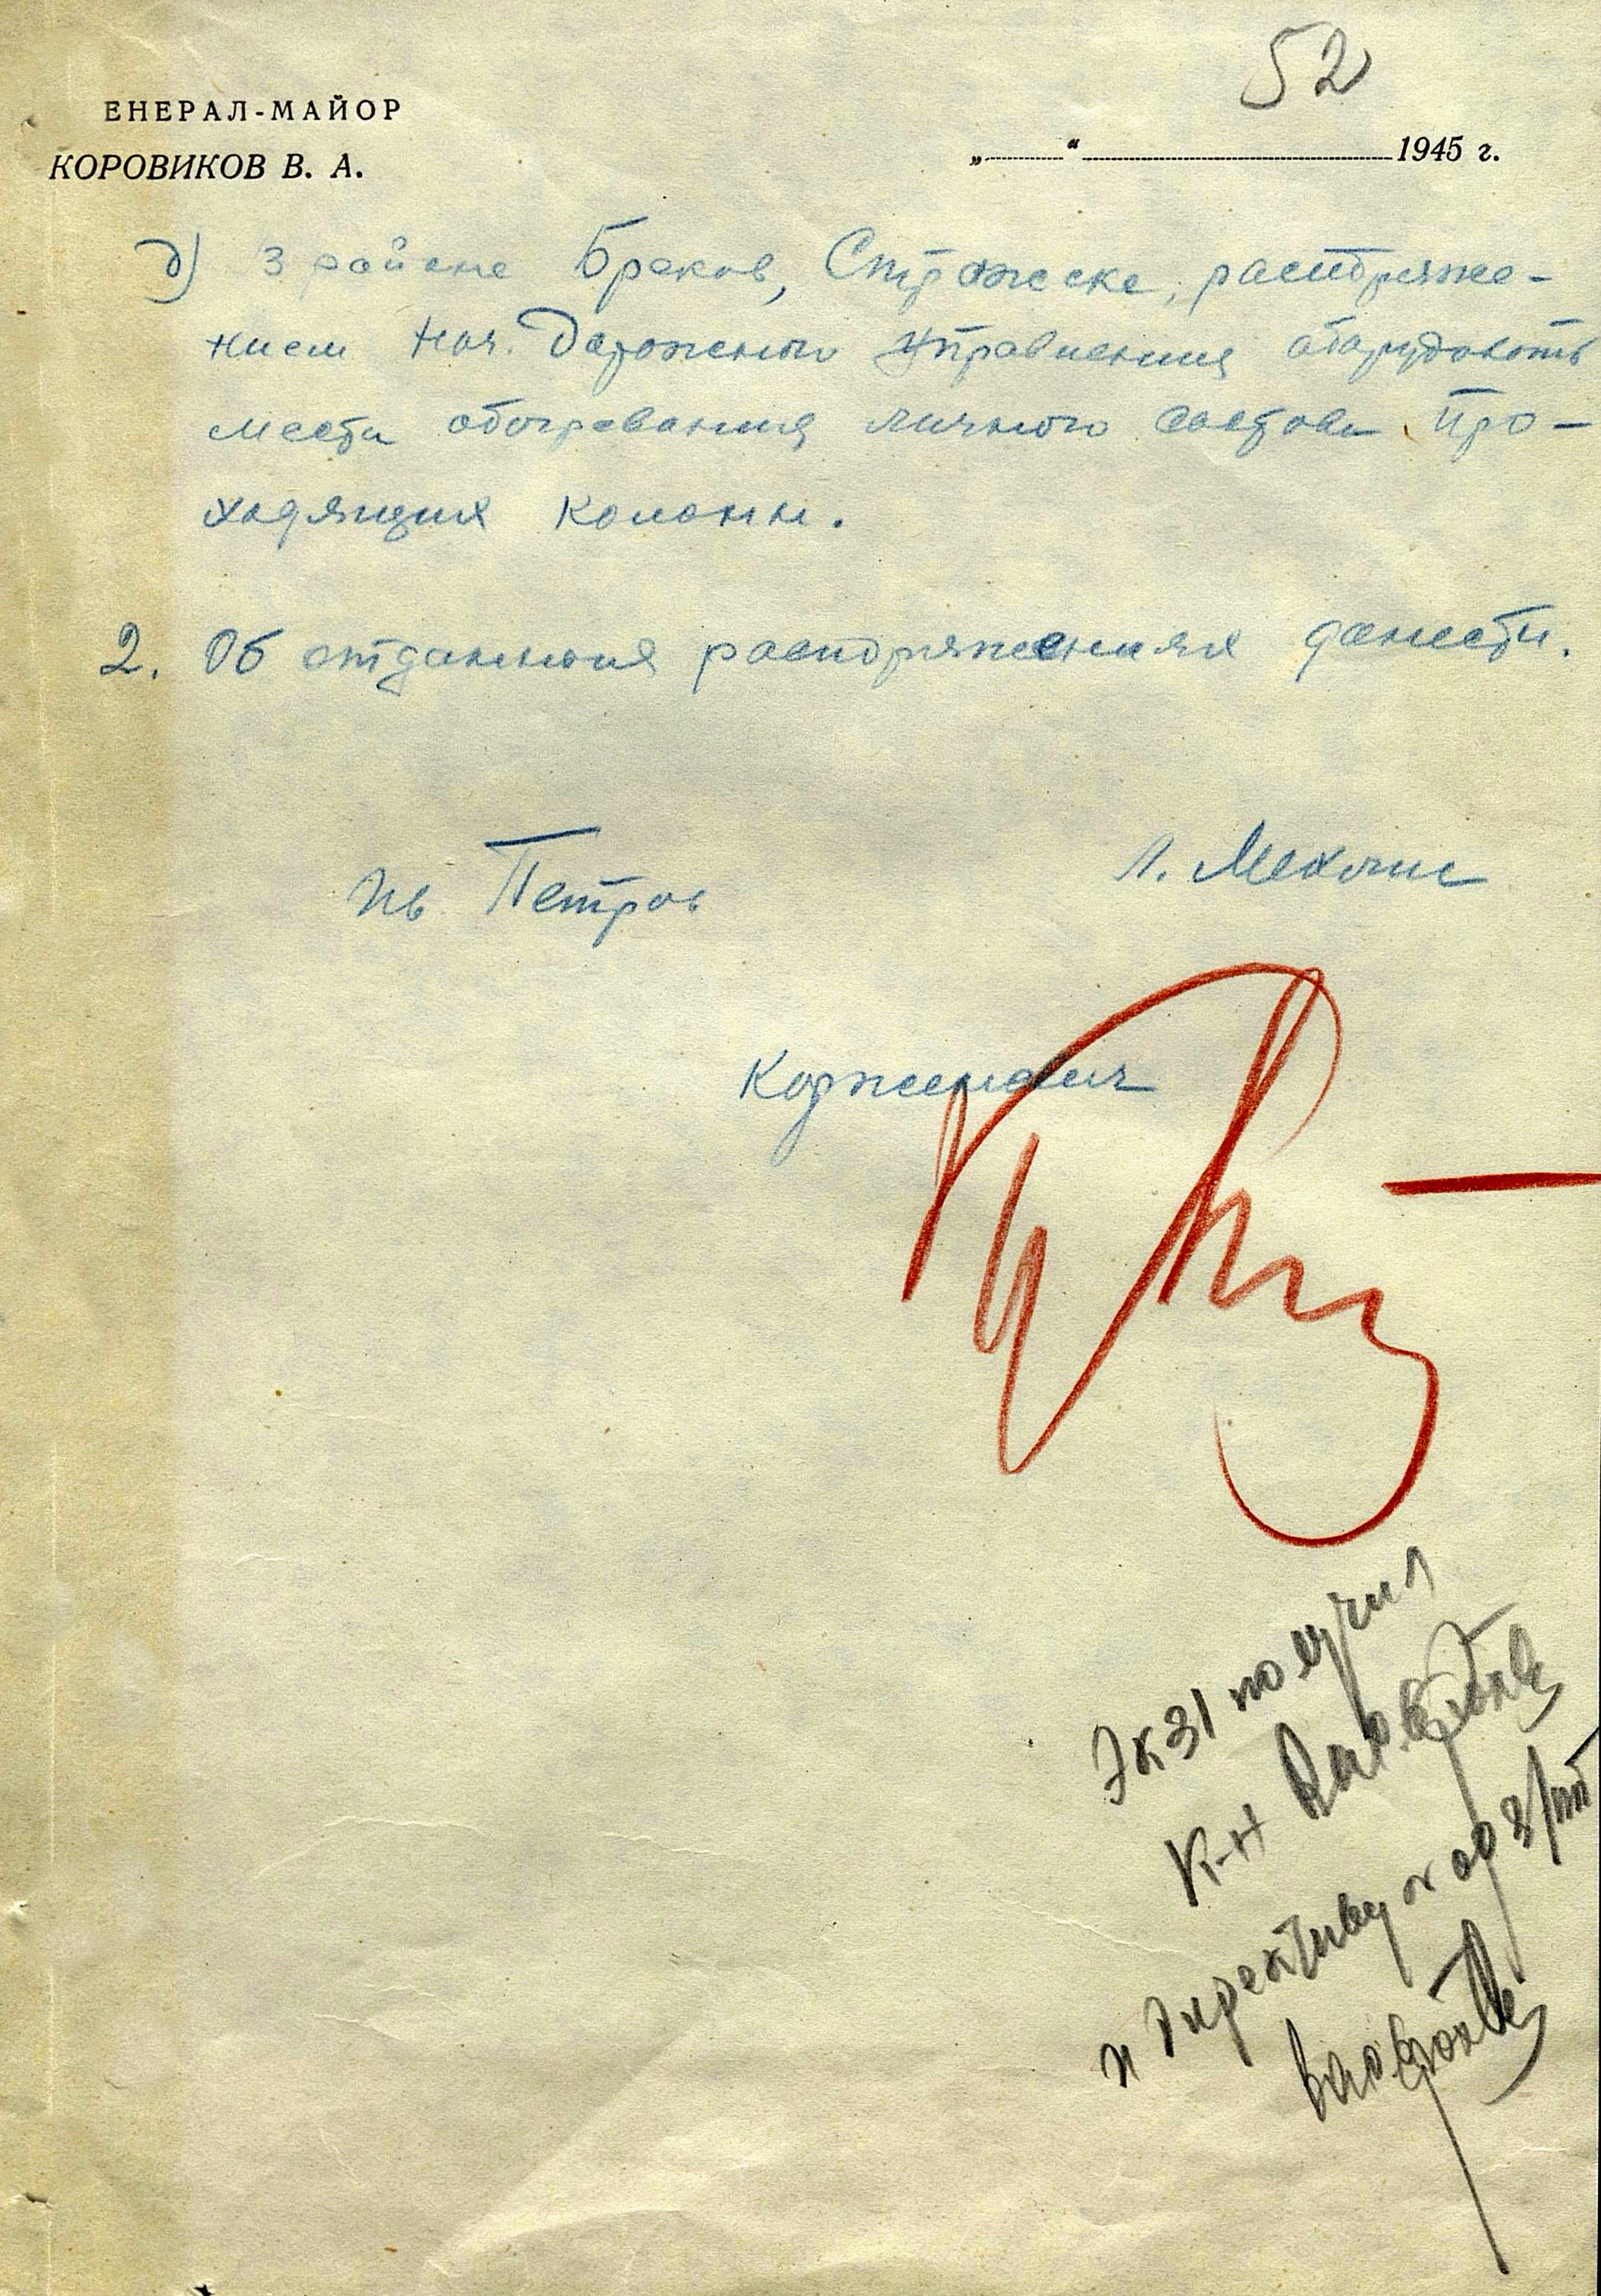 52
ЕНЕРАЛ-МАЙОР
КОРОВИКОВ В. А.
„ “ 1945 г.
д) в районе Браков, Стражеске, распоряже-
нием Нач. Дорожного Управления оборудовать
места обогревания личного состава про-
ходящих колонн.
2. Об отданных распоряжениях донести.
Ив Петров
Л. Мехлис
Корженевич
Экз 1 получил
К-н
и директиву